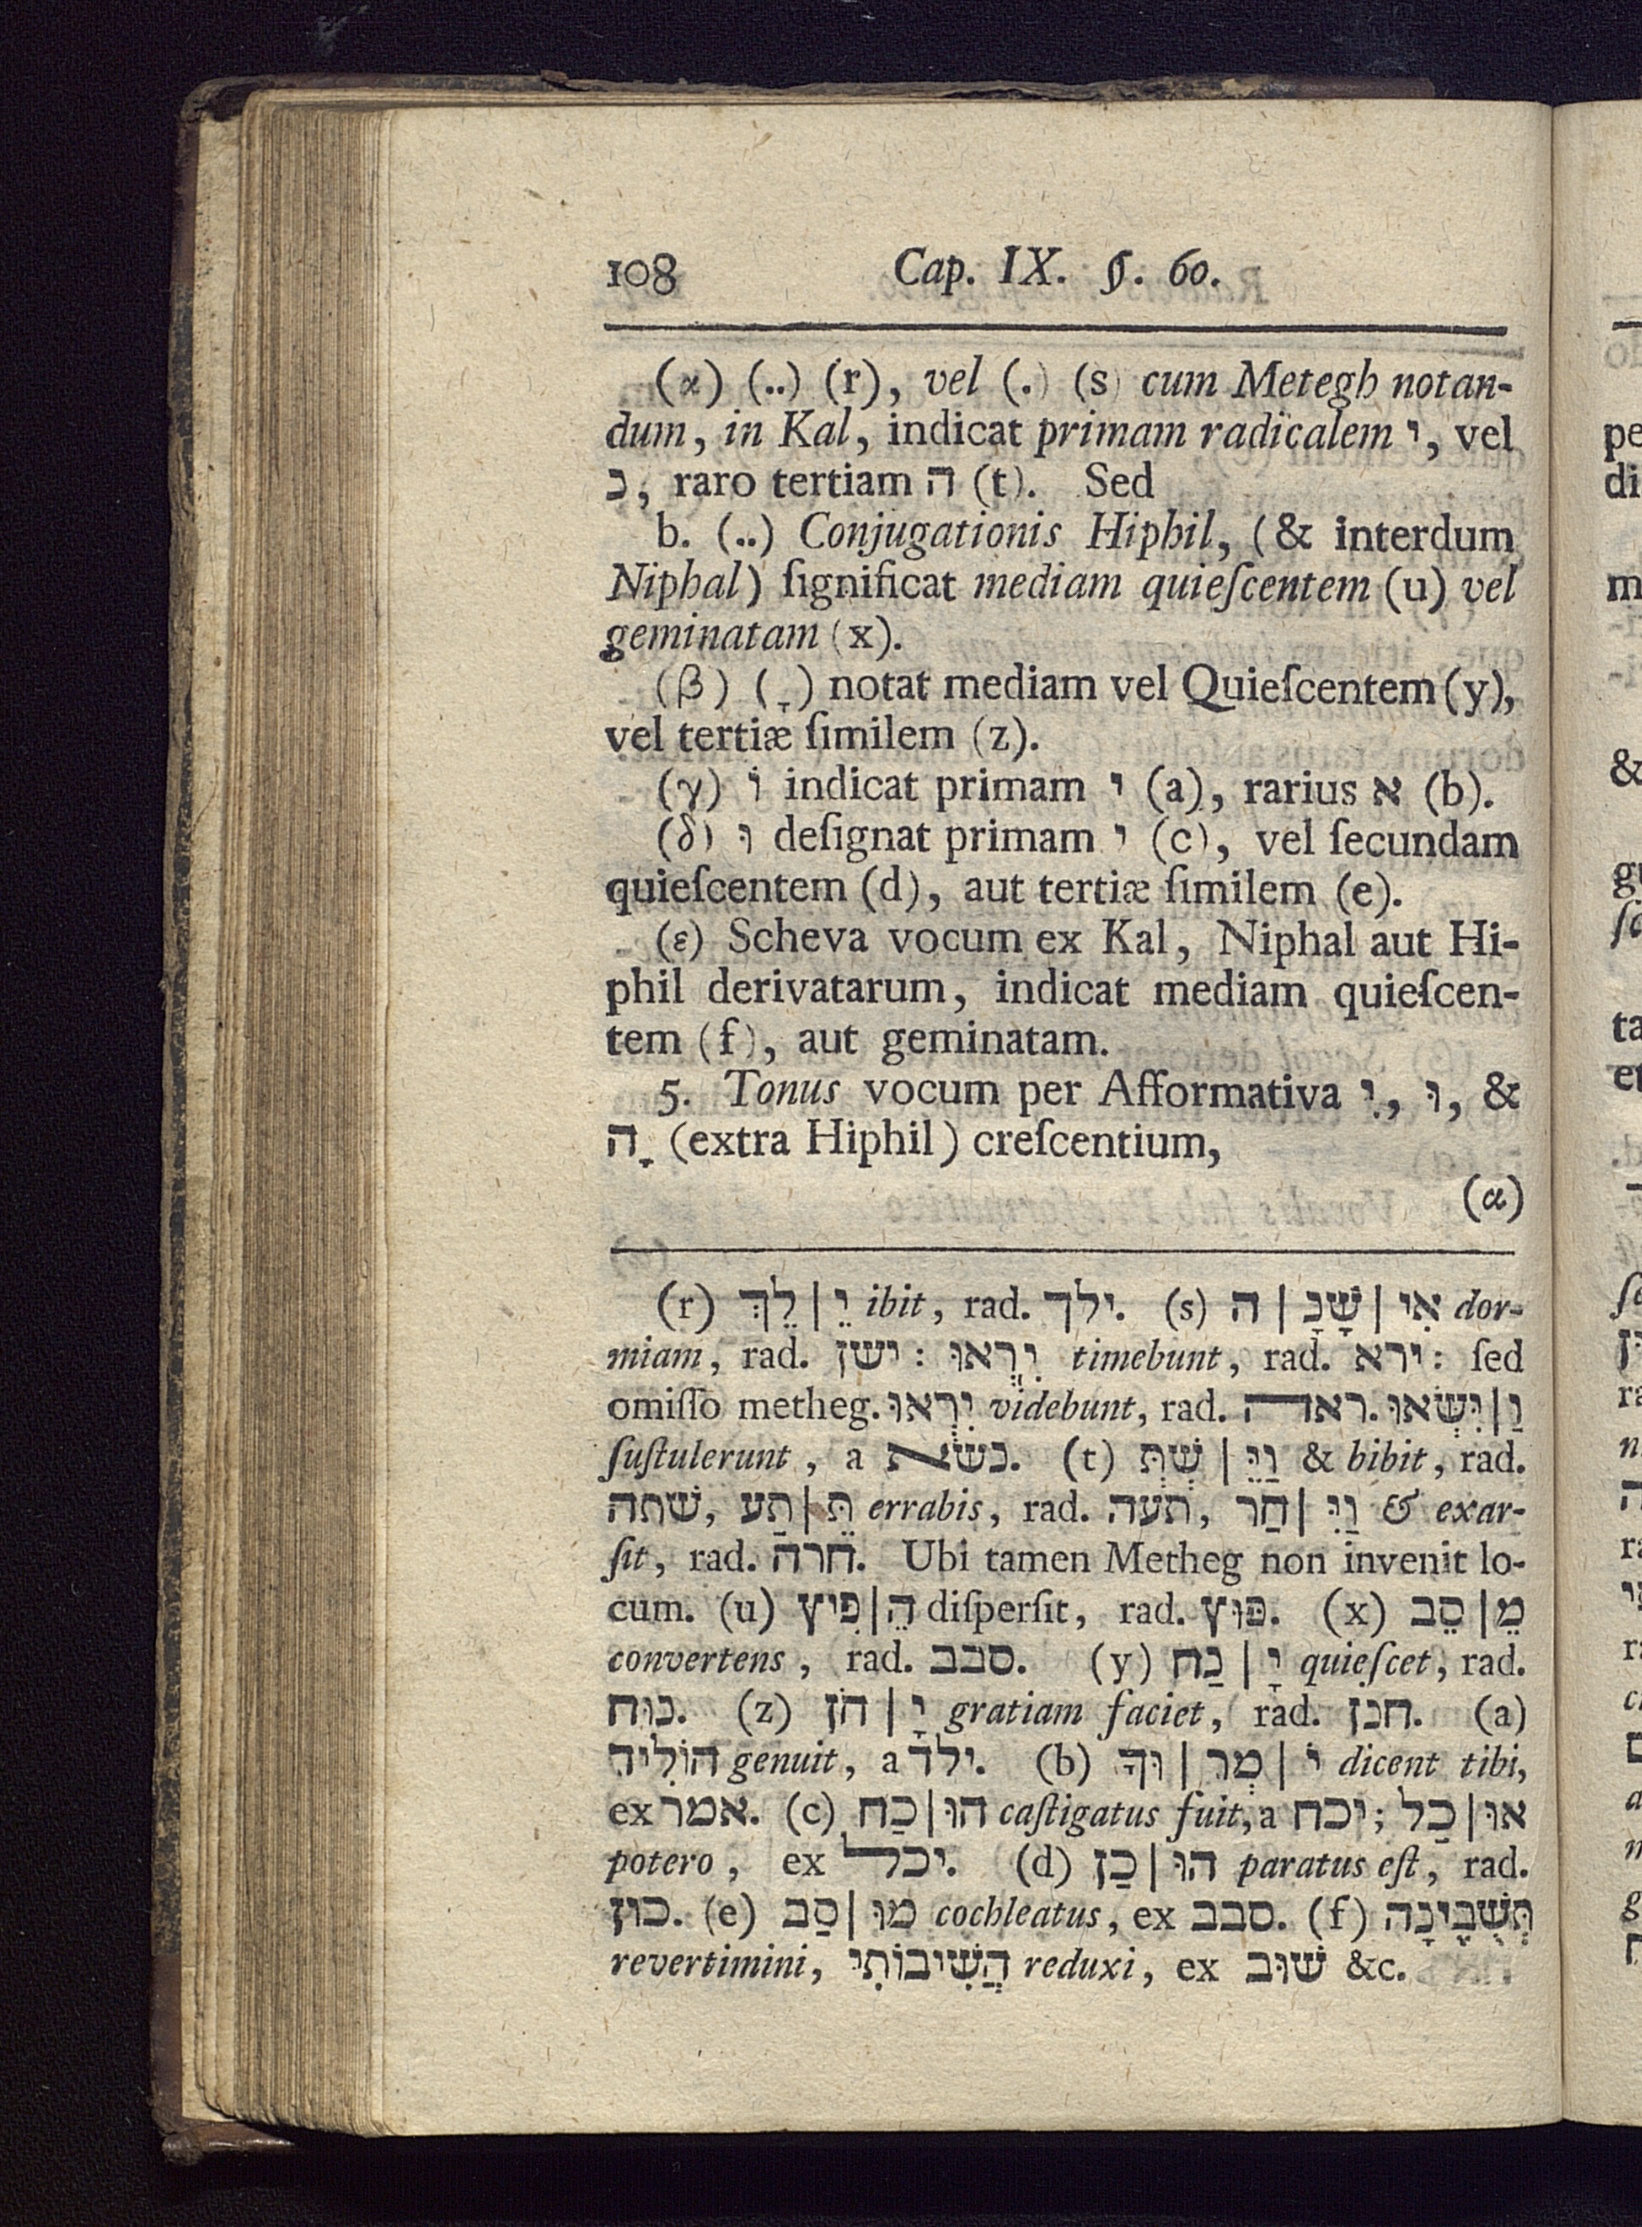 108 Cap. IX. §. 60.
(α) (..) (r), vel (.) (s) cum Metegh notan-
dum, in Kal, indicat primam radicalem י, vel
נ, raro tertiam ה (t). Sed
b. (..) Conjugationis Hiphil, (& interdum
Niphal) ſignificat mediam quieſcentem (u) vel
geminatam (x).
(β) (ָ) notat mediam vel Quieſcentem (y),
vel tertiæ ſimilem (z).
(γ) וֹ indicat primam י (a), rarius א (b).
(δ) וּ deſignat primam י (c), vel ſecundam
quieſcentem (d), aut tertiæ ſimilem (e).
(ε) Scheva vocum ex Kal, Niphal aut Hi-
phil derivatarum, indicat mediam quieſcen-
tem (f), aut geminatam.
5. Tonus vocum per Afformativa ִי, וּ, &
ָה (extra Hiphil) creſcentium,
(α)
(r) יֵ|לֵךְ ibit, rad. ילך. (s) אִי|שָׁנָ|ה dor-
miam, rad. ישן : יִרֲאוּ timebunt, rad. ירא : ſed
omiſſo metheg. יִרְאוּ videbunt, rad. ראה. וַ|יִּשְׂאוּ
ſuſtulerunt, a נשׂא. (t) וַיֵּ|שְׁתְּ & bibit, rad.
שׁתה, תֵּ|תַע errabis, rad. תעה, וַיִּ|חַר & exar-
ſit, rad. חרה. Ubi tamen Metheg non invenit lo-
cum. (u) הֵ|פִיץ diſperſit, rad. פּוּץ. (x) מֵ|סֵב
convertens, rad. סבב. (y) יָ|נַח quieſcet, rad.
נוּח. (z) יָ|הֹן gratiam faciet, rad. חנן. (a)
הוֹלִיד genuit, a ילד. (b) יֹ|מְר|וּךָ dicent tibi,
ex אמר. (c) הוּ|כַח caſtigatus fuit, a יכח ; אוּ|כַל
potero, ex יכל. (d) הוּ|כַן paratus eſt, rad.
כון. (e) מוּ|סַב cochleatus, ex סבב. (f) תְּשֻׁבֶינָה
revertimini, הֲשִׁיבוֹתִי reduxi, ex שׁוּב &c.